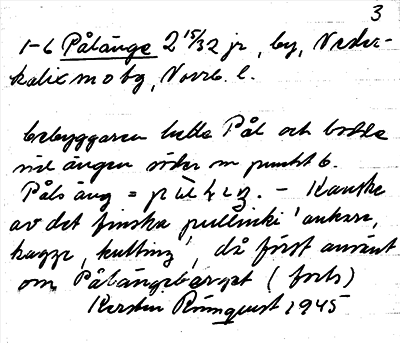 3
1-6 Pålänge 2 15/32 jr, by, Neder-
kalix m o bg, Norrb. l.
bebyggaren hette Pål och bodde
vid ängen söder om punkt 6.
Påls äng = – Kanske
av det finska pullinki 'ankare,
kagge, kutting', då först använt
om Pålängeberget (forts)
Kersten Rönnqvist 1945